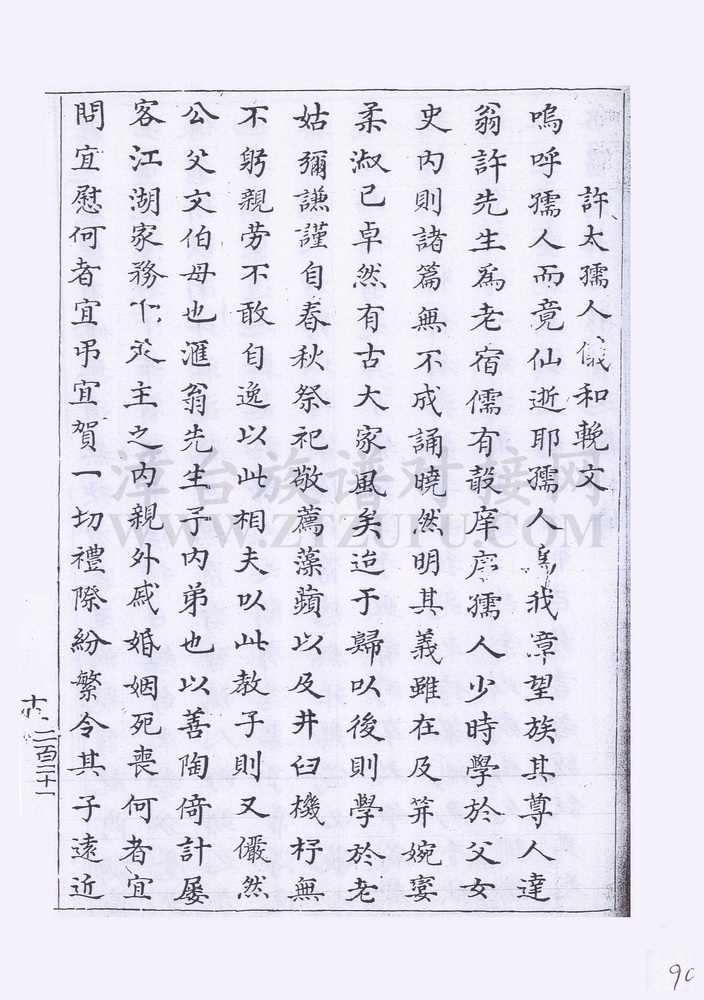 許太孺人儀和輓文
嗚呼孺人而竟仙逝耶孺人我章望族其尊人達
翁許先生為老宿儒有殽庠序孺人少時學於父女
史內則諸篇無不成誦曉然明其義雖在及笄婉孌
柔淑已卓然有古大家風矣迨于歸以後則學於老
姑彌謙謹自春秋祭祀敬薦藻蘋以及井臼機杼無
不躬親勞不敢自逸以此相夫以此教子則又儼然
公父文伯母也滙翁先生予內弟也以善陶倚計屢
客江湖家務主之內親外戚婚姻死喪何者宜
問宜慰何者宜弔宜賀一切禮際紛繁令其子遠近
二百二十一
漳台族谱对接网
WWW.ZTZUPU.COM
90